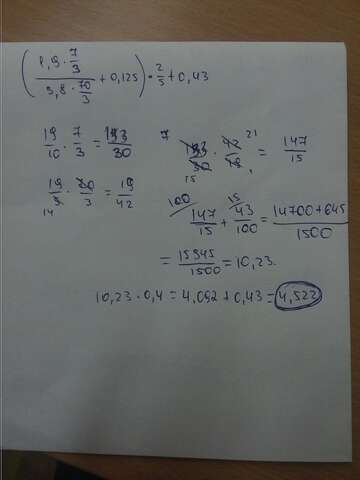 (1,9 · 7/3 / 3,8 · 70/3 + 0,125) · 2/5 + 0,43
19/10 · 7/3 = 133/30
19/5 · 70/3 = 19/42
14
7 133/30 · 42/19 21 = 147/15
15 1
100 15
147/15 + 43/100 = 14700+645/1500
= 15345/1500 = 10,23.
10,23 · 0,4 = 4,092 + 0,43 = 4,522